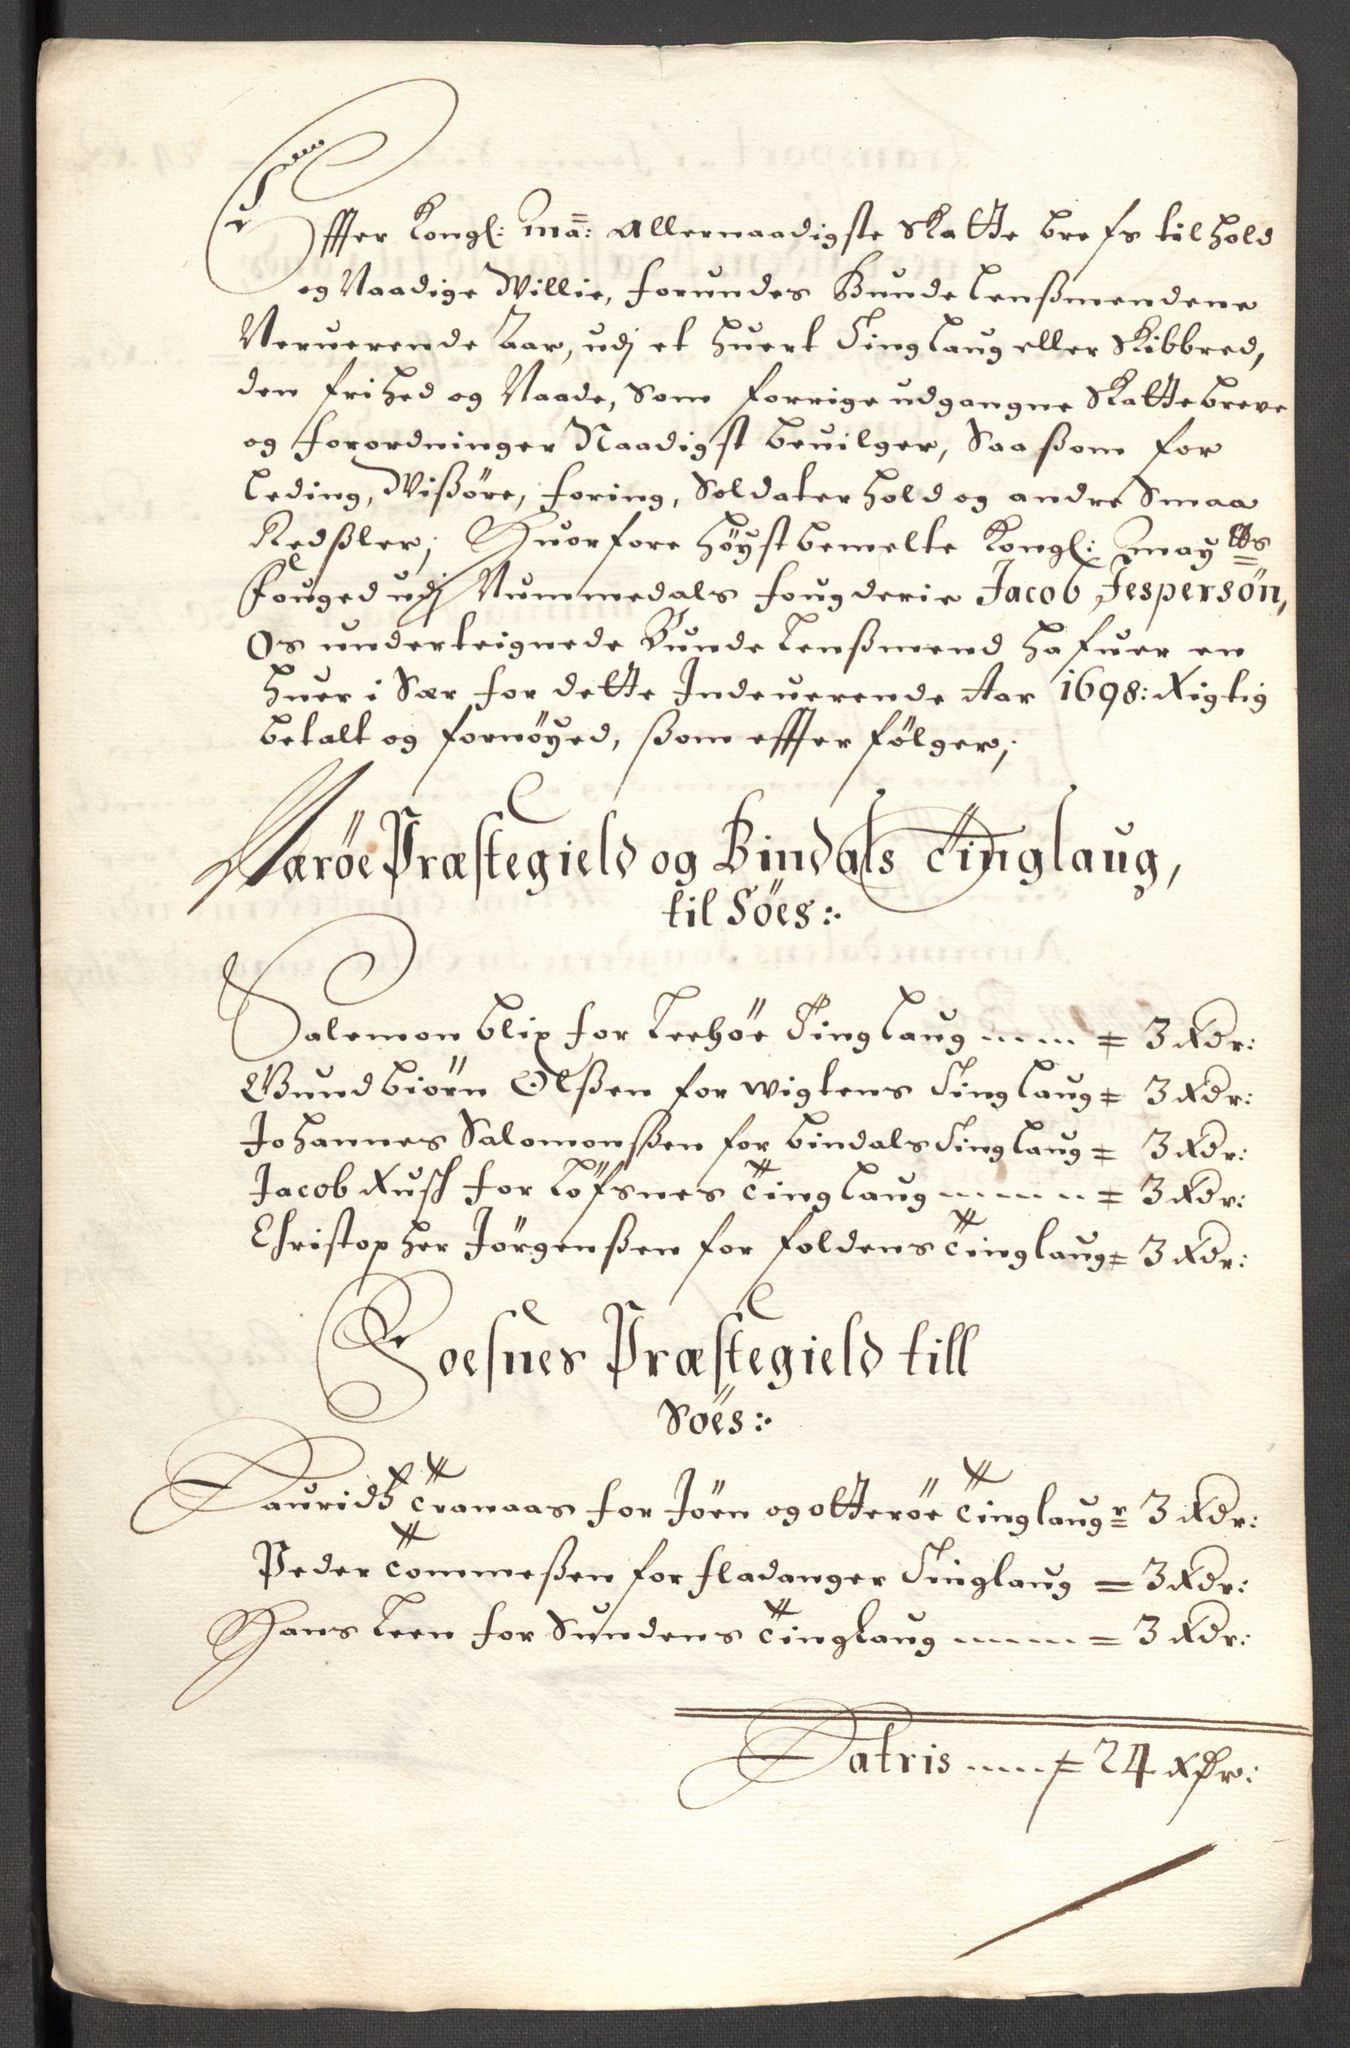 Effter Kongl: Maÿ: Allernaadigste Skatte brefs tilhold
og Naadige Willie, forundes Bunde Lensmendene
Neruerende Aar, udj et huert Tinglaug eller Skibbred,
den frihed og Naade, Som forrige udgangne Skattebreve
og forordninger Naadigst beuilger, Saasom for
Leding, Wißøre, foring, Soldaterhold og andre Smaa
Redßler; Huorfore høystbemelte Kongl: May:tts
fouged udj Nummedals fougderie Jacob Jespersøn,
Os underteignede Bunde Lensmend hafuer en
huer i Sær for dette Indeuerende Aar 1698: Rigtig
betalt og fornøyed, som effter følger;
Nærøe Præstegield og Bindals Tinglaug,
til Söes:
Salemon blix for Leehöe Tinglaug ..... = 3 Rdr:
Gundbiörn Olßen for wigtens Tinglaug = 3 Rdr:
Johannes Salomonßen for bindals Tinglaug = 3 Rdr:
Jacob Rusch for Löfsnes Tinglaug ....... = 3 Rdr:
Christopher Jörgenßen for foldens Tinglaug = 3 Rdr:
Foesnes Præstegield till
Söes:
Lauridtz Tranaas for Jöen og otteröe Tinglaugr = 3 Rdr:
Peder Tommeßen for fladanger Tinglaug = 3 Rdr:
Hans Leen for Sundens Tinglaug ....... = 3 Rdr:
Latris ..... = 24 Rdr: